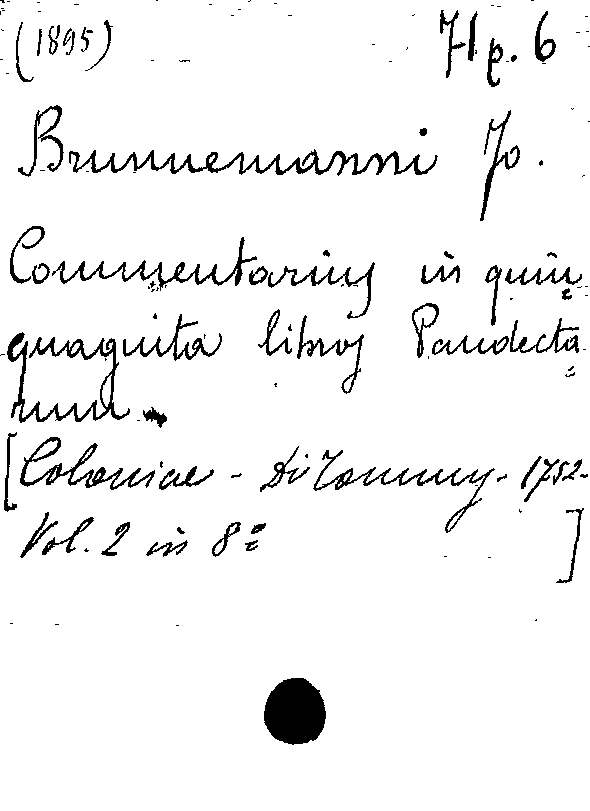 (1895) Hp. 6
Brunnemanni Jo.
Commentarius in quin=
quaginta libros Pandecta=
rum.
[Coloniae - De Tournes - 1752-
Vol. 2 in 8º]